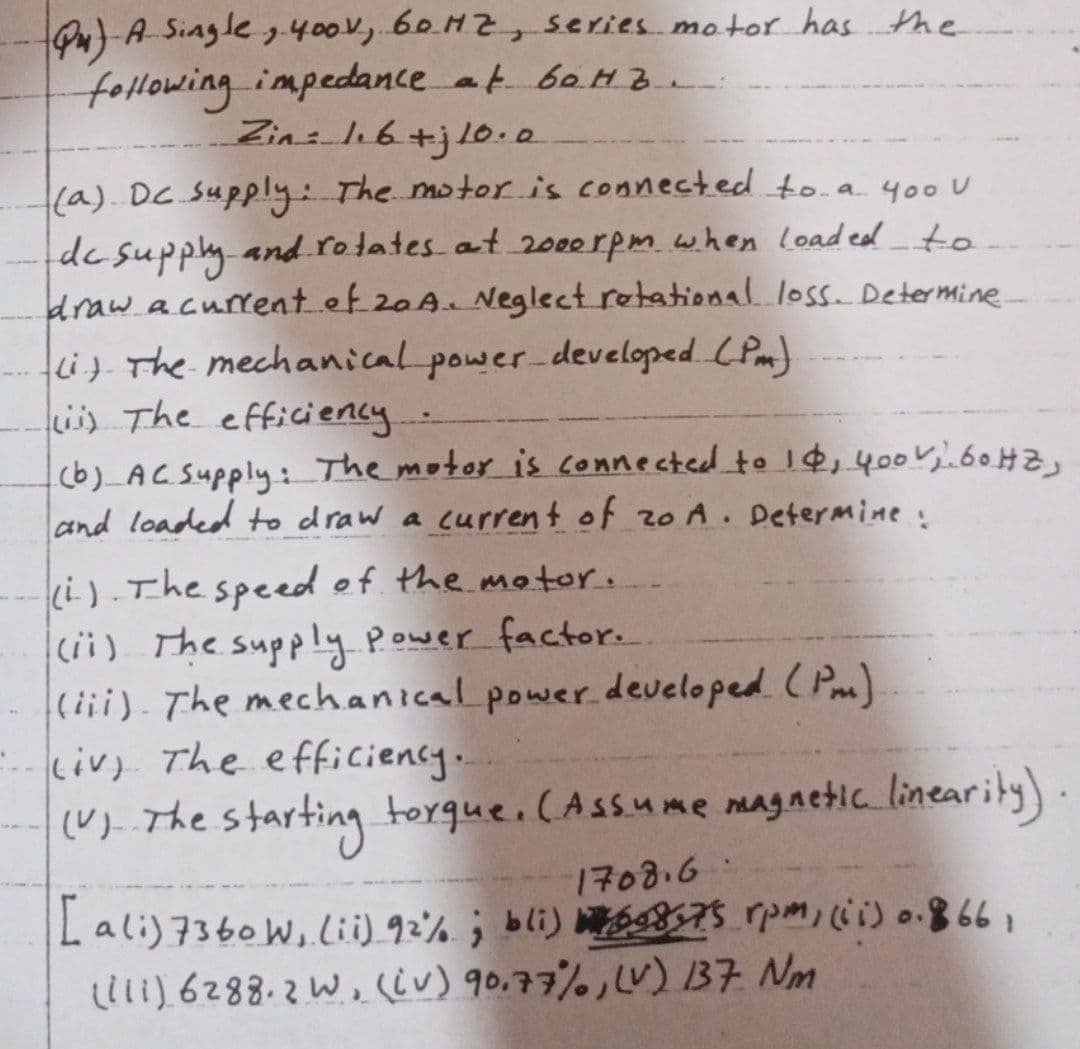 Q4) A Single, 400V, 60 HZ, series motor has the
following impedance at 60 HZ.
Zin = 1.6 + j 10.0
(a) DC Supply: The motor is connected to a 400 V
dc supply and rotates at 2000 rpm when loaded to
draw a current of 20 A. Neglect rotational loss. Determine
(i) The mechanical power developed (Pm)
(ii) The efficiency.
(b) AC Supply: The motor is connected to 1ϕ, 400V, 60HZ,
and loaded to draw a current of 20 A. Determine:
(i). The speed of the motor.
(ii) The supply Power factor.
(iii). The mechanical power developed (Pm)
(iv) The efficiency.
(V) The starting torque. (Assume magnetic linearity).
1708.6
[a(i) 7360 W, (ii) 92%; b(i) rpm, (ii) 0.866,
(iii) 6288.2 W, (iv) 90.77%, (V) 137 Nm